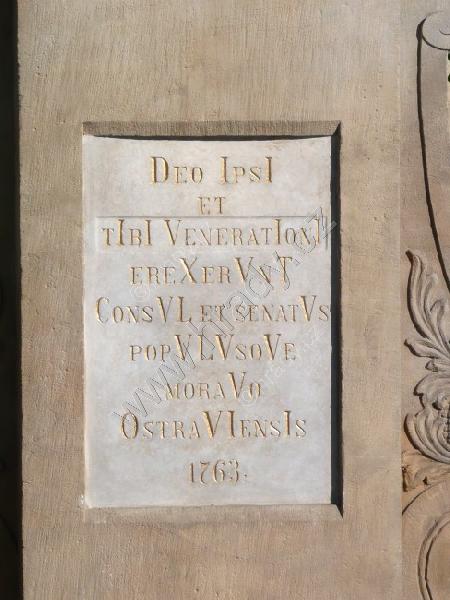 Deo IpsI
ET
tIbI VeneratIonI
ereXerVnT
ConsVL et senatVs
popVLVsqVe
moraVo
OstraVIensIs
1763.
www.hrady.cz